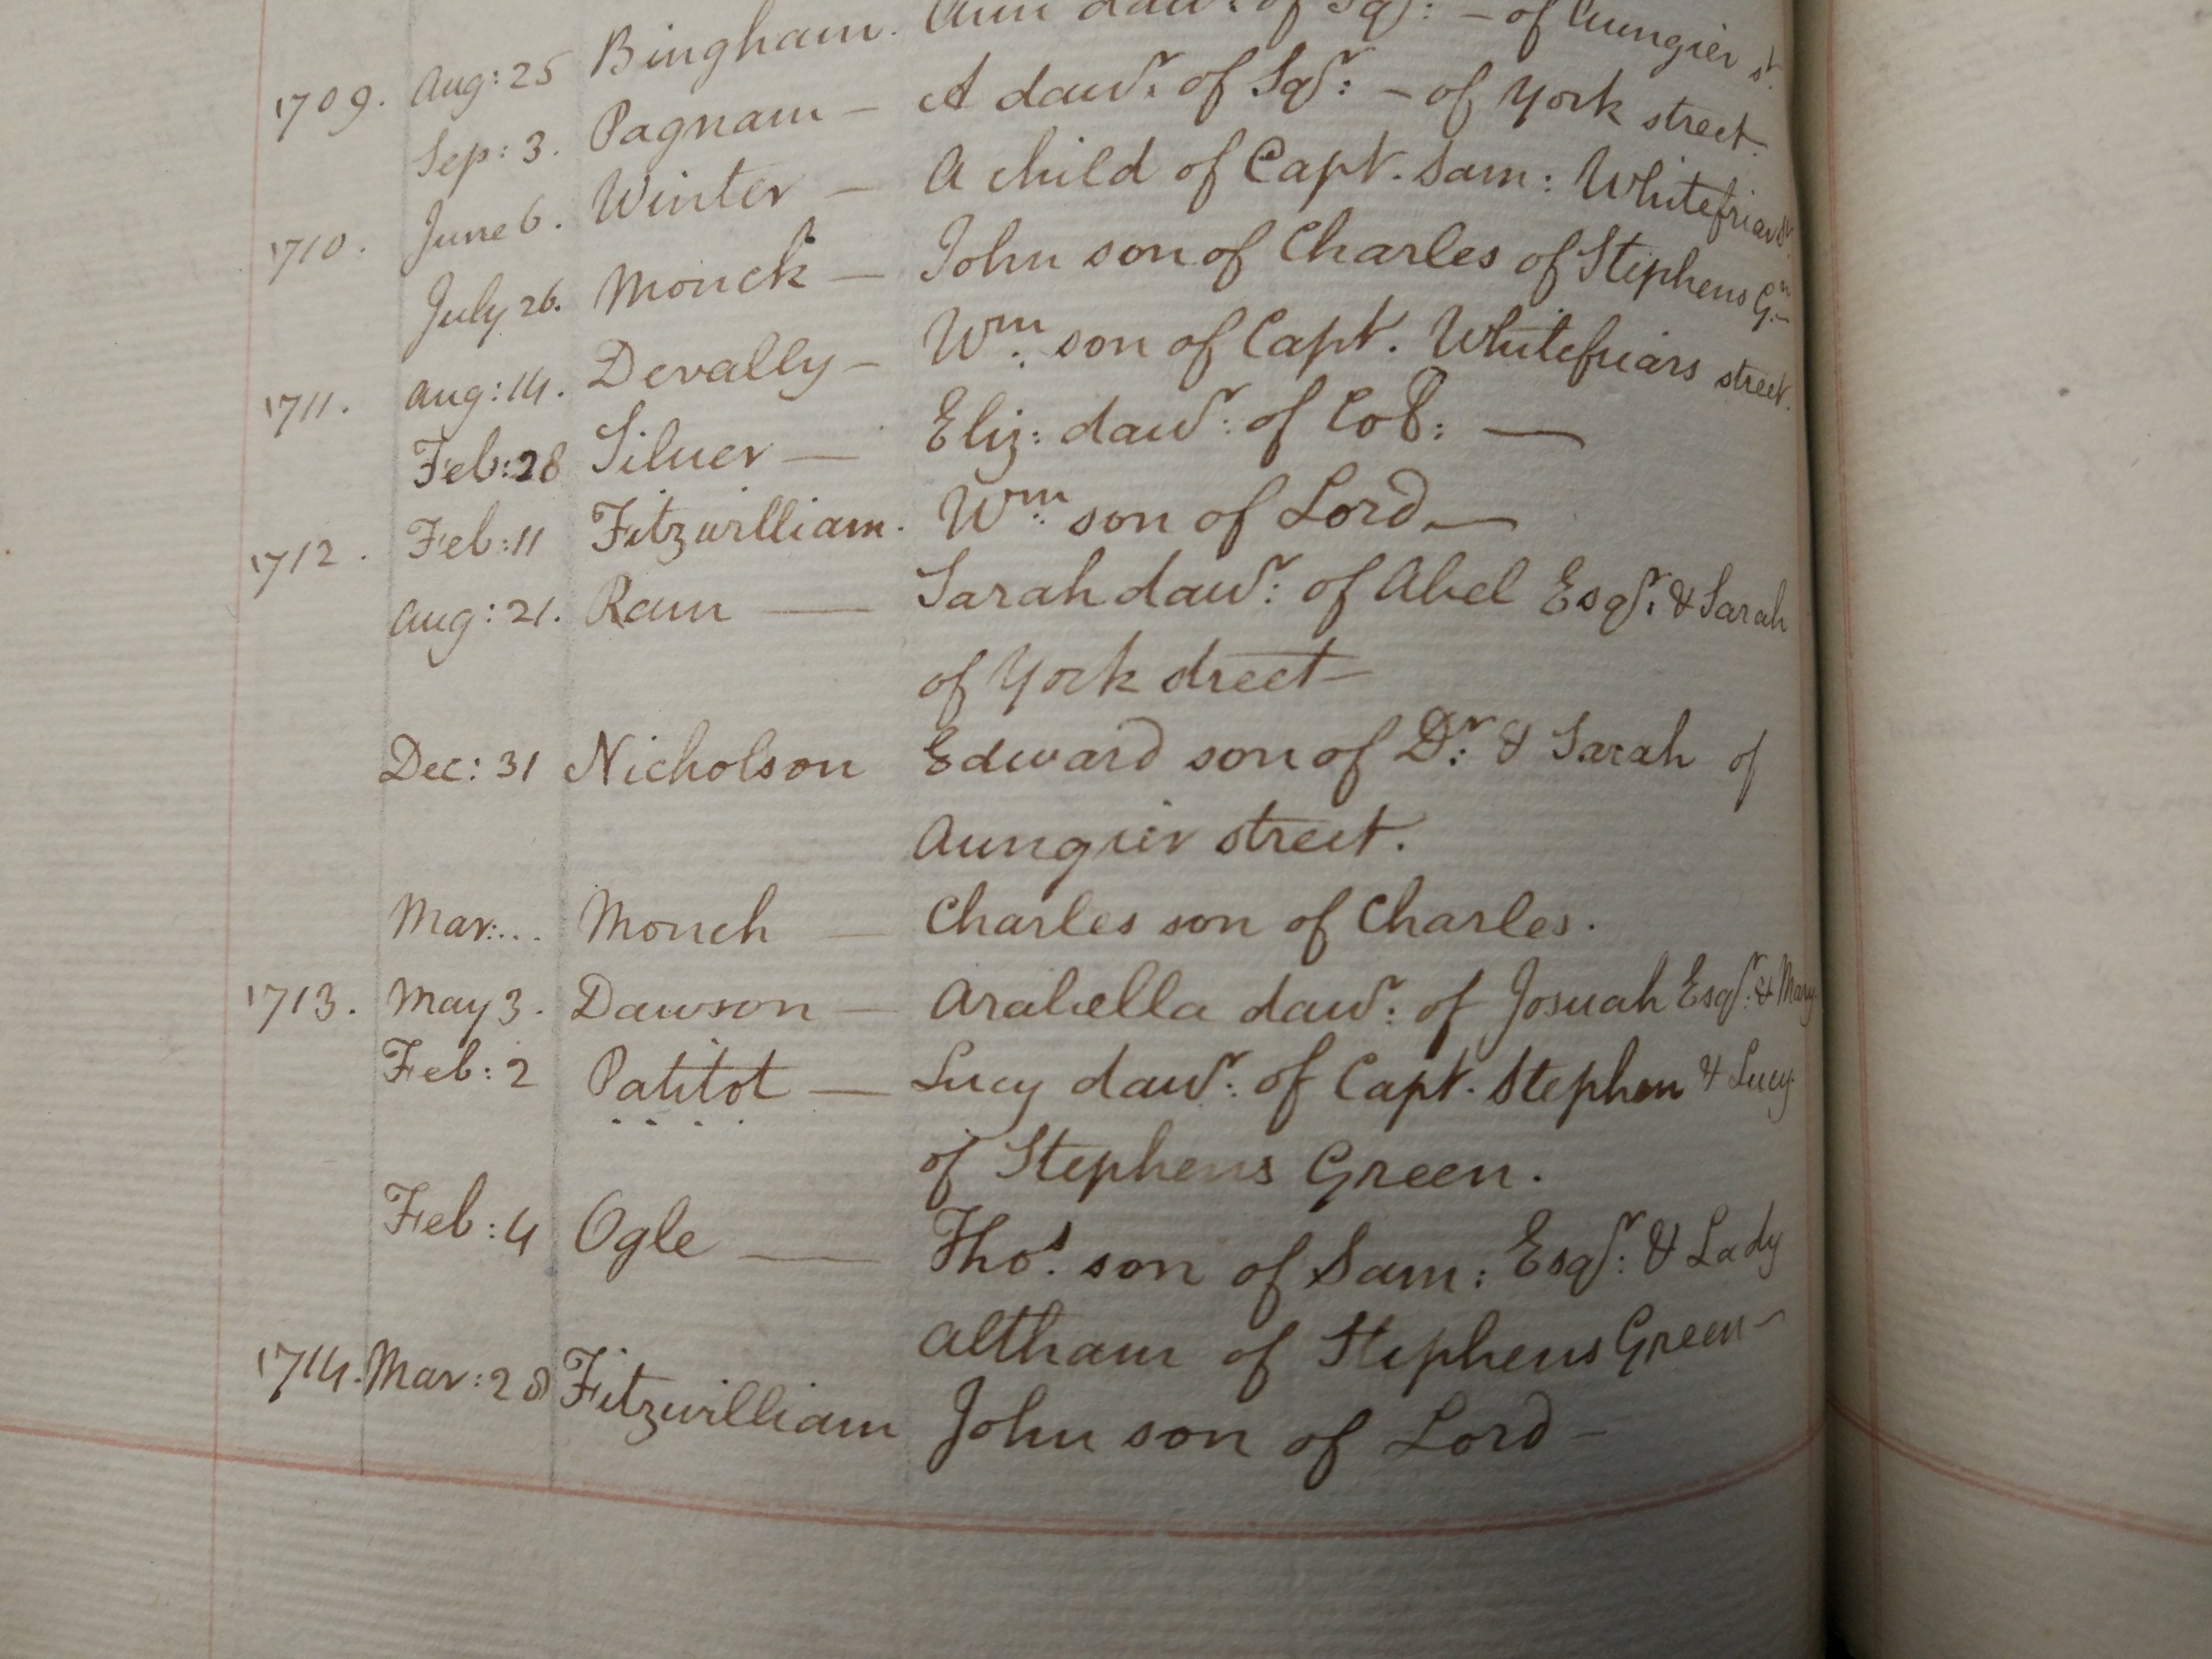 1709. Aug: 25 Bingham. Ann dawr. of Sqr: - of Aungier st.
Sep: 3. Pagnam - A dawr. of Sqr: - of York street.
1710. June 6. Winter - A child of Capt. Sam: Whitefriars St.
July 26. Monck - John son of Charles of Stephens Gn
1711. Aug: 14. Devally - Wm. son of Capt. Whitefriars street.
Feb: 28 Silver - Eliz: dawr: of Col: -
1712. Feb: 11 Fitzwilliam. Wm: son of Lord -
Aug: 21. Ram - Sarah dawr: of Abel Esqr: & Sarah
of York street -
Dec: 31 Nicholson Edward son of Dr: & Sarah of
Aungier street.
Mar:... Monch - Charles son of Charles.
1713. May 3. Dawson - Arabella dawr: of Josuah Esqr: & Mary
Feb: 2 Patitot - Lucy dawr: of Capt. Stephen & Lucy
of Stephens Green.
Feb: 4 Ogle - Thos. son of Sam: Esqr: & Lady
Altham of Stephens Green -
1714. Mar: 28 Fitzwilliam John son of Lord -